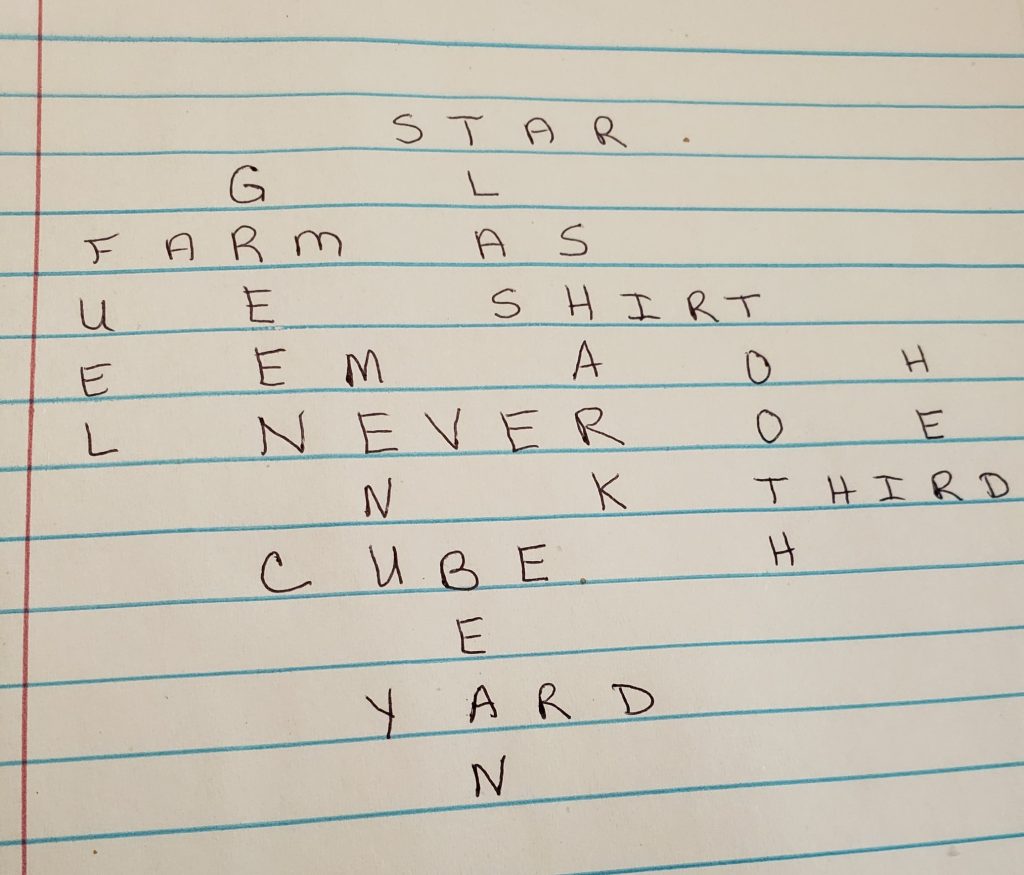 S T A R .
G L
F A R M A S
U E S H I R T
E E M A O H
L N E V E R O E
N K T H I R D
C U B E . H
E
Y A R D
N